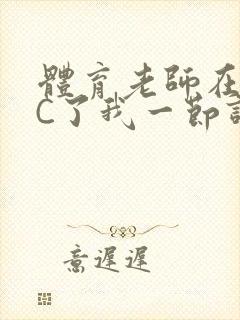 體育老師在
C了我一節
意遲遲